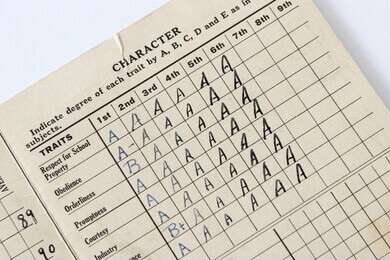 CHARACTER
Indicate degree of each trait by A, B, C, D and E as in
subjects.
TRAITS 1st 2nd 3rd 4th 5th 6th 7th 8th 9th
Respect for School
Property A A A A A A A
Obedience A- A A A A A A
Orderliness B A A A A A A
Promptness A A A A A A A
Courtesy A A A A A A A
Industry B+ A A A A A A
A A A A A A
89
90